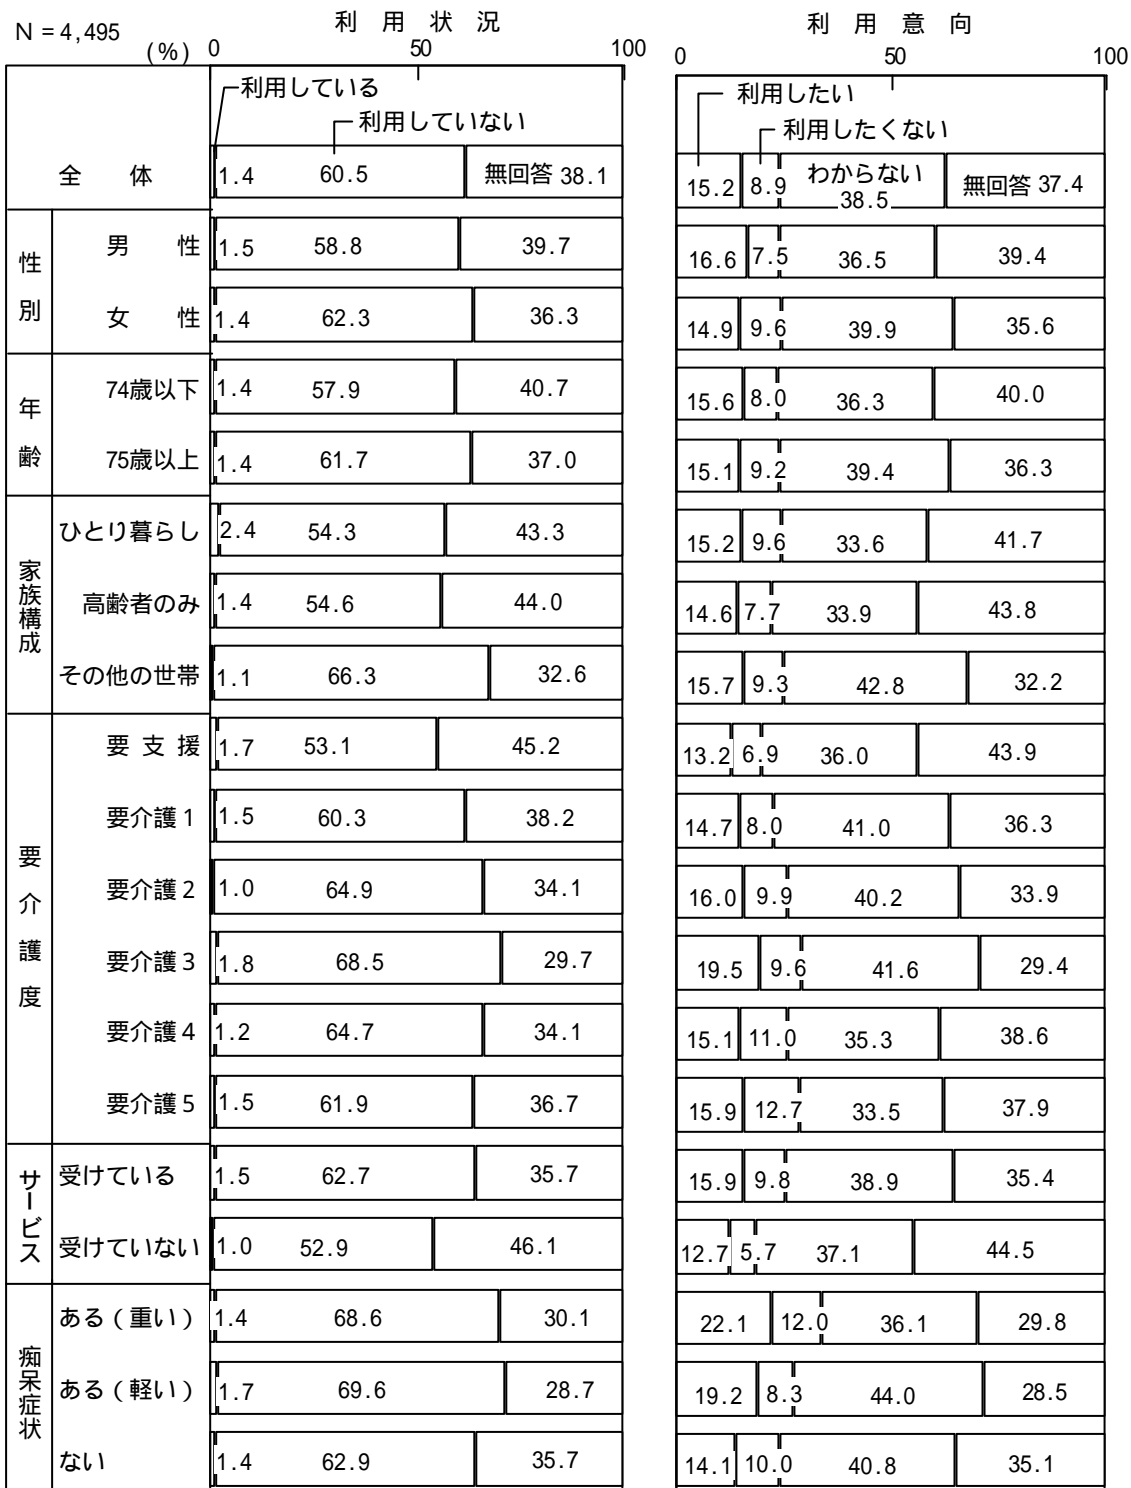 N = 4,495
(%)
利用状況
0 50 100
利用意向
0 50 100
利用している
利用していない
利用したい
利用したくない
全体 1.4 60.5 無回答 38.1 15.2 8.9 わからない 38.5 無回答 37.4
性別
男性 1.5 58.8 39.7 16.6 7.5 36.5 39.4
女性 1.4 62.3 36.3 14.9 9.6 39.9 35.6
年齢
74歳以下 1.4 57.9 40.7 15.6 8.0 36.3 40.0
75歳以上 1.4 61.7 37.0 15.1 9.2 39.4 36.3
家族構成
ひとり暮らし 2.4 54.3 43.3 15.2 9.6 33.6 41.7
高齢者のみ 1.4 54.6 44.0 14.6 7.7 33.9 43.8
その他の世帯 1.1 66.3 32.6 15.7 9.3 42.8 32.2
要介護度
要支援 1.7 53.1 45.2 13.2 6.9 36.0 43.9
要介護1 1.5 60.3 38.2 14.7 8.0 41.0 36.3
要介護2 1.0 64.9 34.1 16.0 9.9 40.2 33.9
要介護3 1.8 68.5 29.7 19.5 9.6 41.6 29.4
要介護4 1.2 64.7 34.1 15.1 11.0 35.3 38.6
要介護5 1.5 61.9 36.7 15.9 12.7 33.5 37.9
サービス
受けている 1.5 62.7 35.7 15.9 9.8 38.9 35.4
受けていない 1.0 52.9 46.1 12.7 5.7 37.1 44.5
痴呆症状
ある(重い) 1.4 68.6 30.1 22.1 12.0 36.1 29.8
ある(軽い) 1.7 69.6 28.7 19.2 8.3 44.0 28.5
ない 1.4 62.9 35.7 14.1 10.0 40.8 35.1